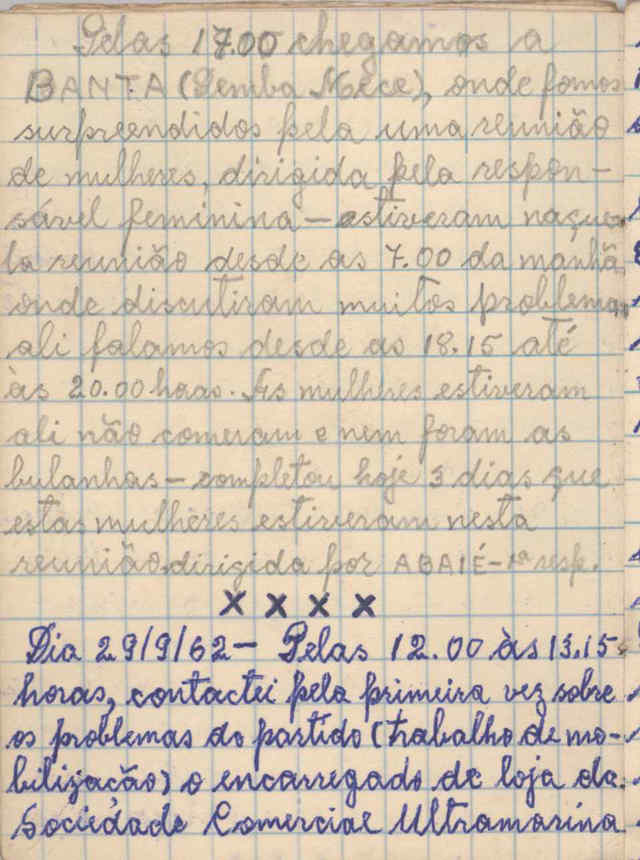 Pelas 17.00 chegamos a
BANTA (Pemba Mece), onde fomos
surpreendidos pela uma reunião
de mulheres, dirigida pela respon-
sável feminina - estiveram naque-
la reunião desde as 7.00 da manhã
onde discutiram muitos problemas,
ali falamos desde as 18.15 até
às 20.00 horas. As mulheres estiveram
ali não comeram e nem foram as
bulanhas - completou hoje 3 dias que
estas mulheres estiveram nesta
reunião dirigida por ABAIÉ - 1ª resp.
X X X X
Dia 29/9/62 - Pelas 12.00 às 13.15
horas, contactei pela primeira vez sobre
os problemas do partido (trabalho de mo-
bilização) o encarregado de loja da
Sociedade Comercial Ultramarina